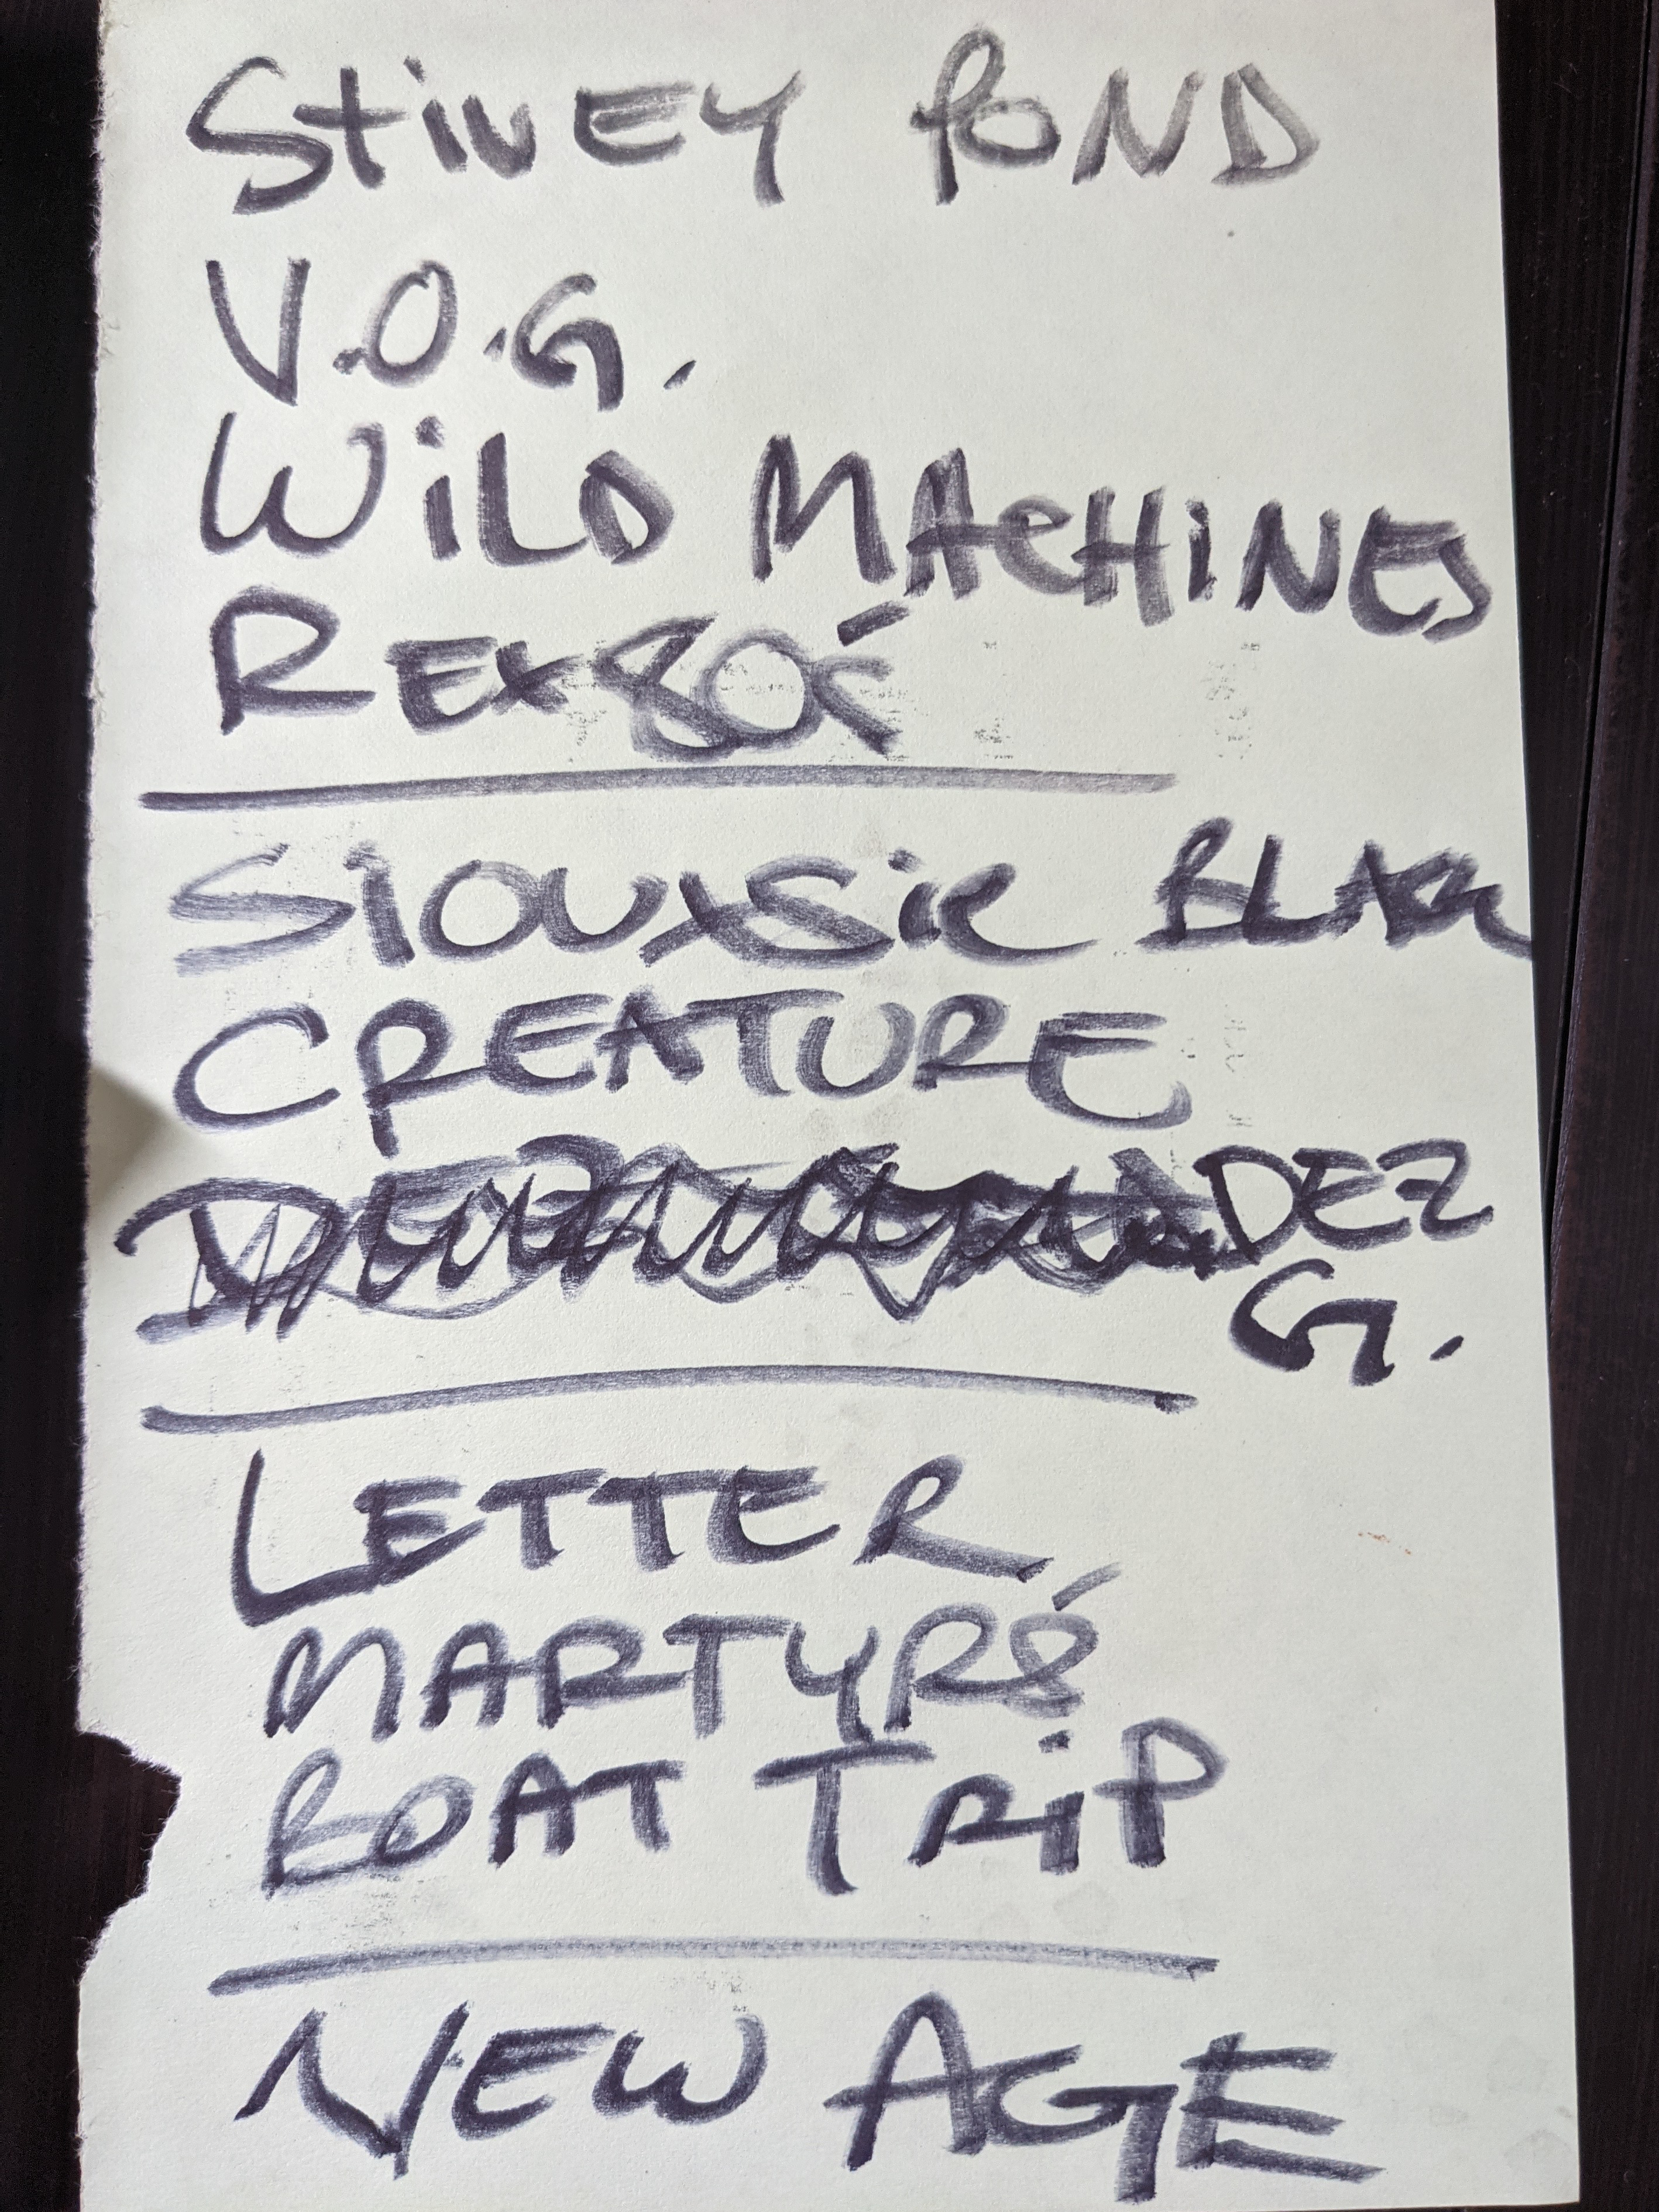 STIVEY POND
V.O.G.
WiLD MACHINES
SiOUXSiE BLACK
CREATURE
DEZ
G.
LETTER,
MARTYRS
BOAT TRiP
NEW AGE